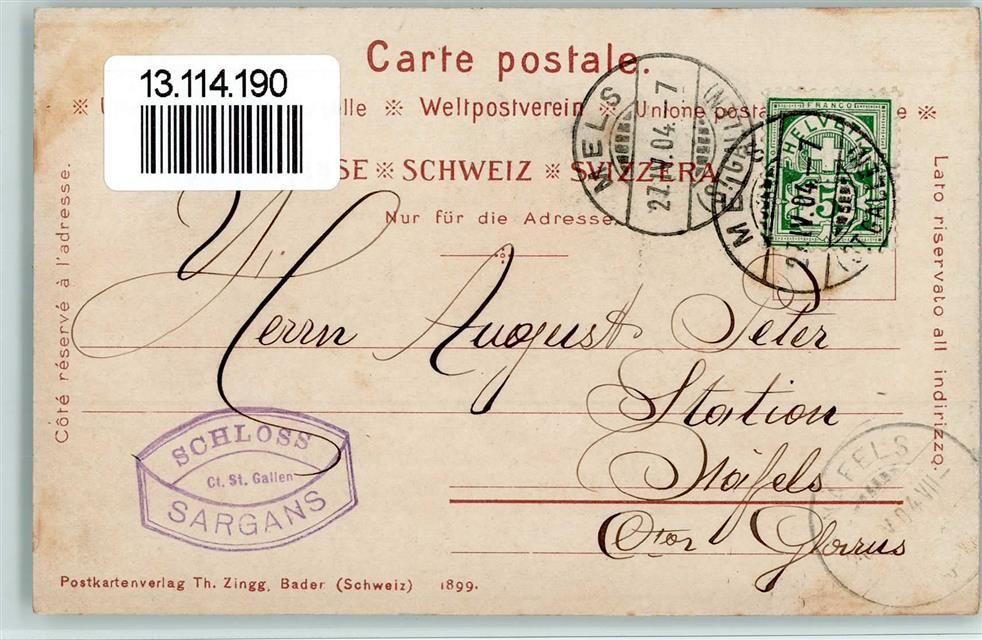 13.114.190
Carte postale.
※ U elle ※ Weltpostverein ※ Unione posta e ※
SSE ※ SCHWEIZ ※ SVIZZERA
Nur für die Adresse.
Côté réservé à l'adresse.
Lato riservato all indirizzo.
MELS
27.IV.04.-7
FRANCO
HELVETIA
5
MELS
27.IV.04.-7
(ST. GALLEN)
Herrn August Peter
Station
Näfels
Cton Glarus
SCHLOSS
Ct. St. Gallen
SARGANS
NÄFELS
04.VII
Postkartenverlag Th. Zingg, Bader (Schweiz) 1899.